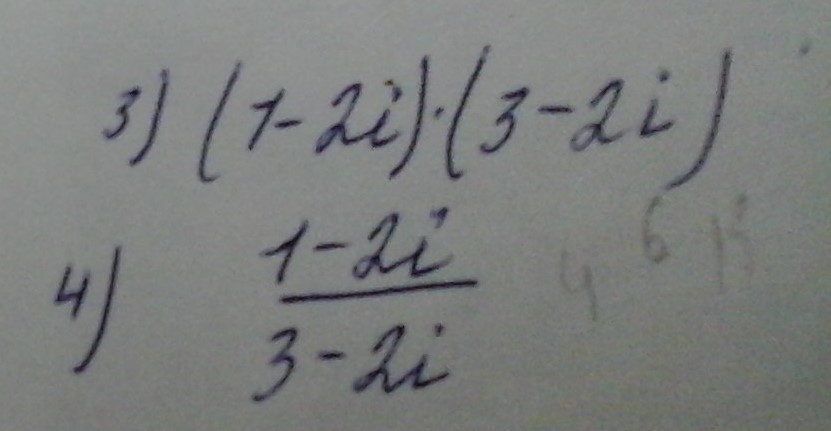 3) (1-2i)·(3-2i)
4) \frac{1-2i}{3-2i}